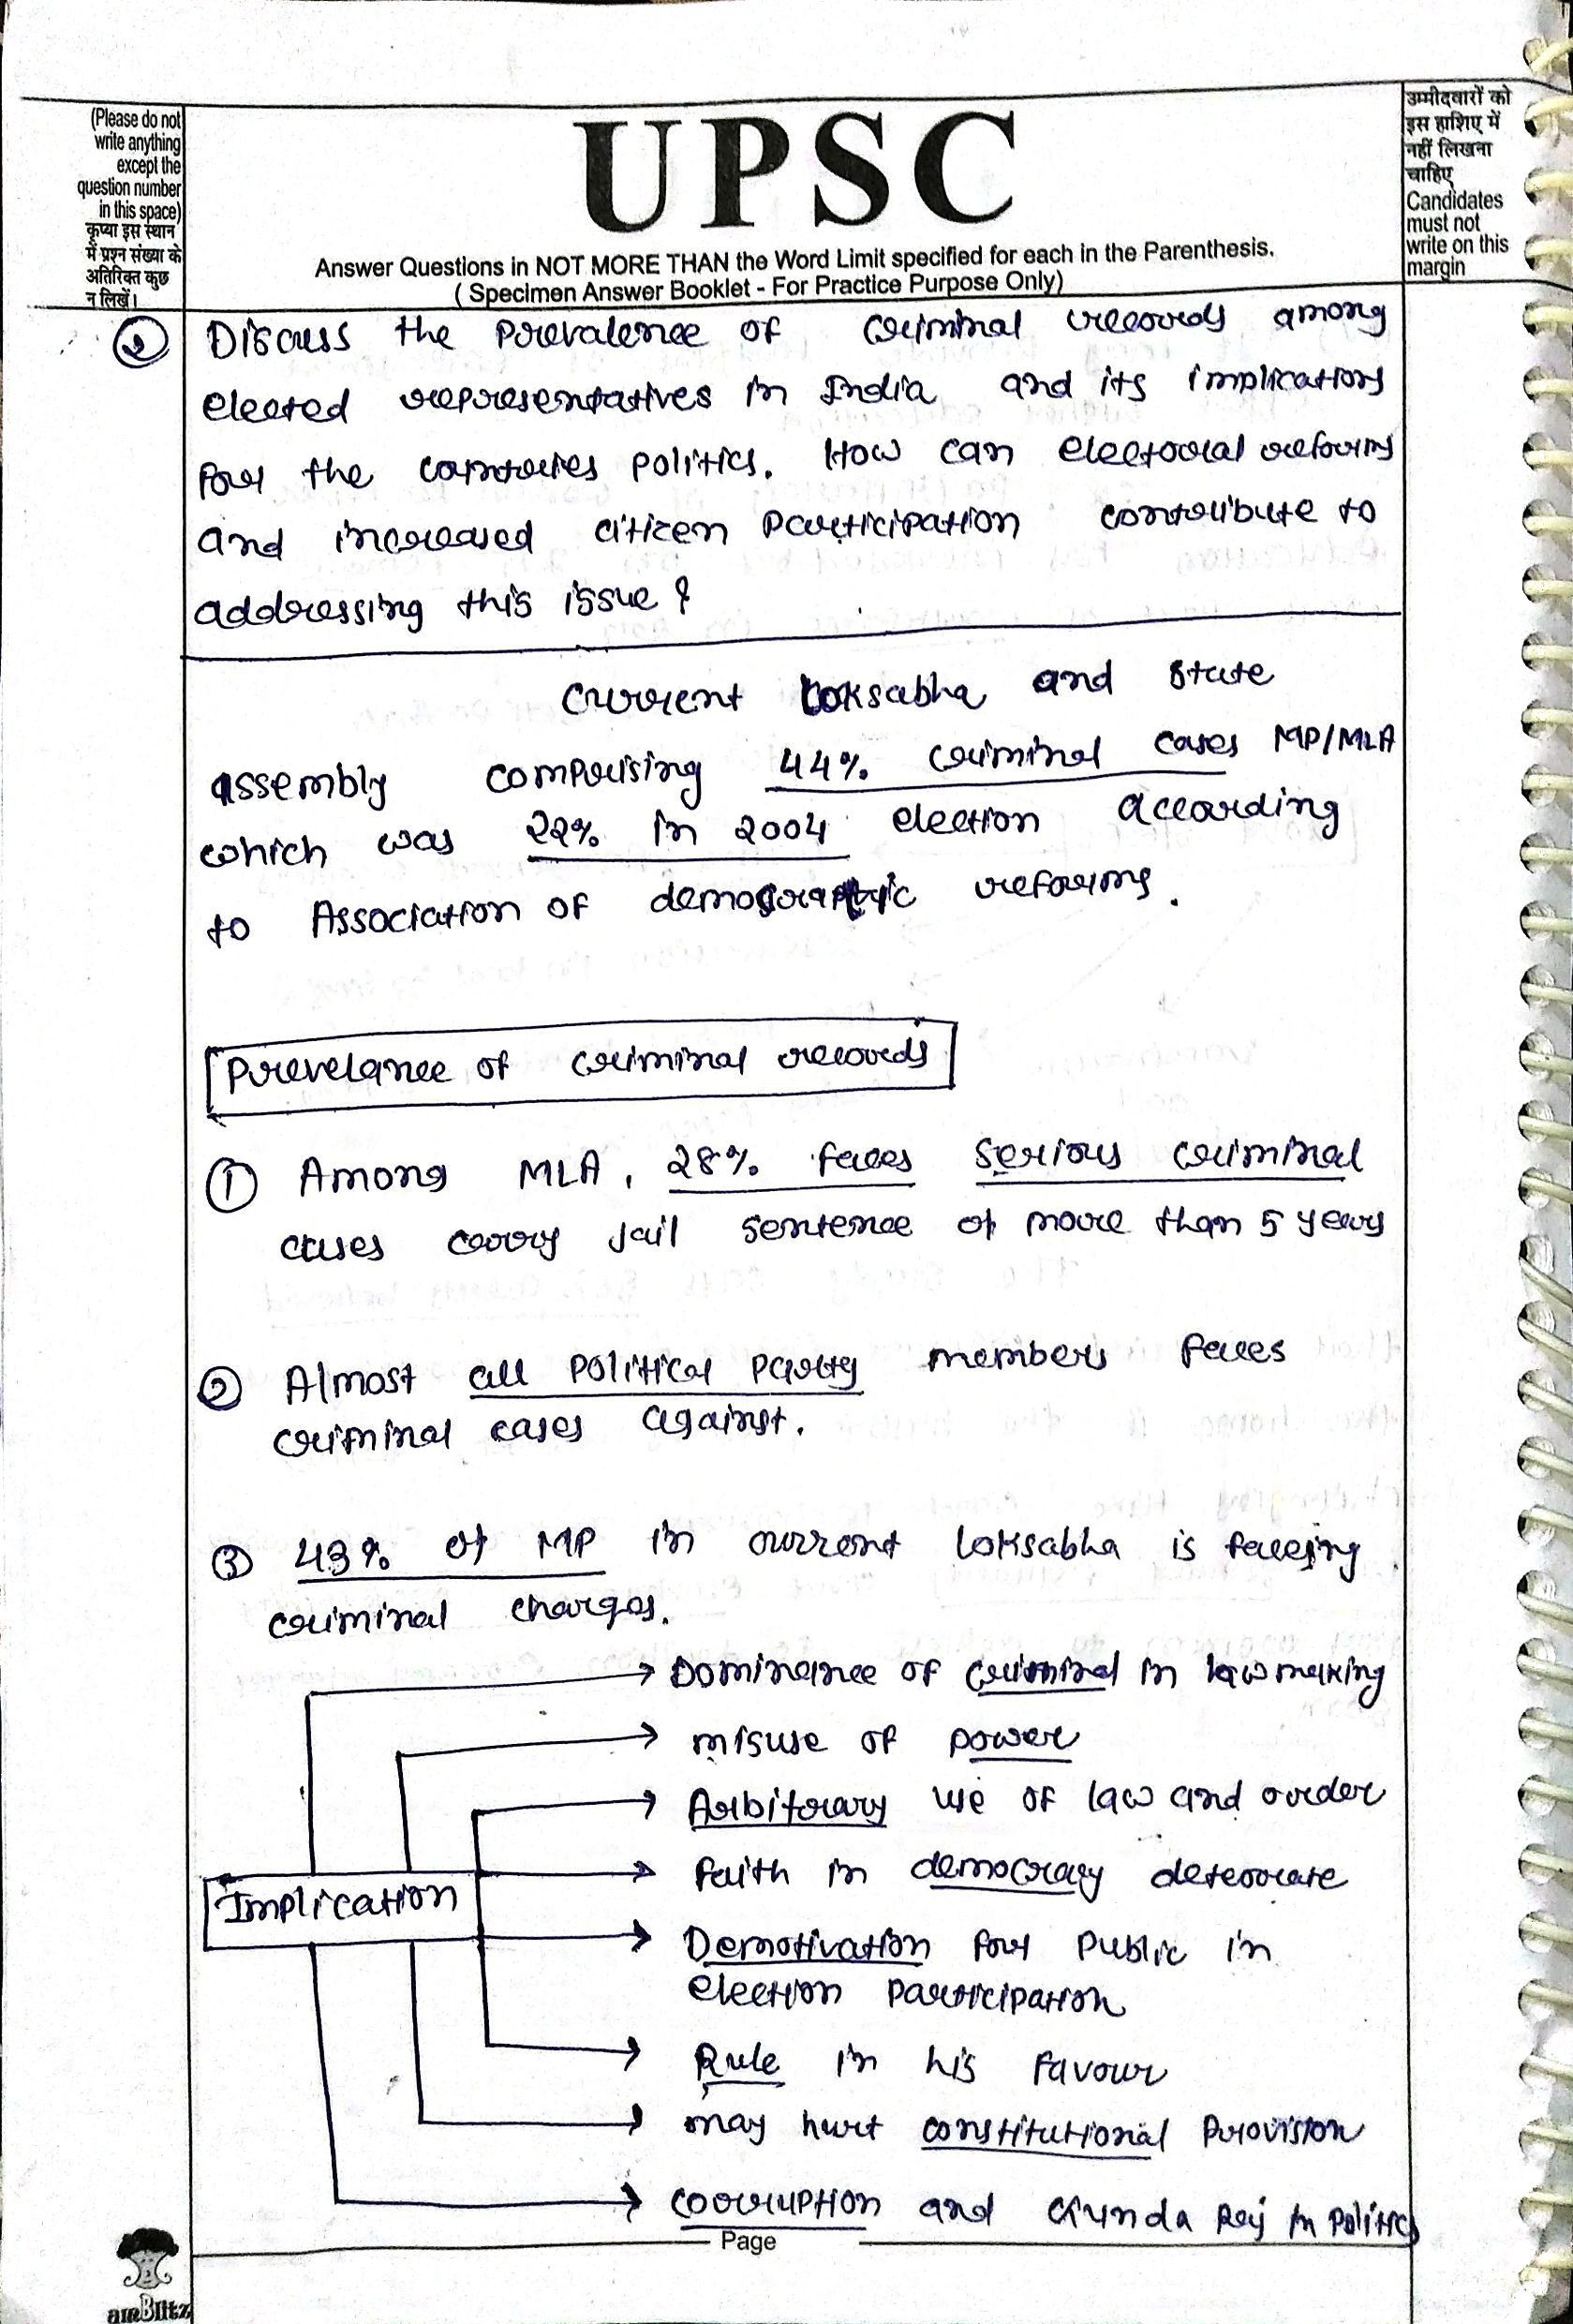 (Please do not
write anything
except the
question number
in this space)
कृप्या इस स्थान
में प्रश्न संख्या के
अतिरिक्त कुछ
न लिखें।
UPSC
Answer Questions in NOT MORE THAN the Word Limit specified for each in the Parenthesis.
( Specimen Answer Booklet - For Practice Purpose Only)
उम्मीदवारों को
इस हाशिए में
नहीं लिखना
चाहिए
Candidates
must not
write on this
margin
② Discuss the prevalence of criminal records among
elected representatives in India and its implications
for the contries politics. How can electoral reforms
and increased citizen participation contribute to
addressing this issue ?
Current Loksabha and State
assembly comprising 44% criminal cases MP/MLA
which was 22% in 2004 election according
to Association of democratic reforms.
Prevelance of criminal records
① Among MLA, 28% faces serious criminal
cases carry jail sentence of more than 5 years
② Almost all political party members faces
criminal cases against.
③ 43% of MP in current loksabha is faceing
criminal charges.
→ Dominance of criminal in law making
→ misuse of power
→ Arbitrary use of law and order
→ faith in democracy deteorate
Implication
→ Demotivation for public in
election participation
→ Rule in his favour
→ may hurt constitutional provision
→ corruption and Gunda Raj in politics
Page
amBlitz